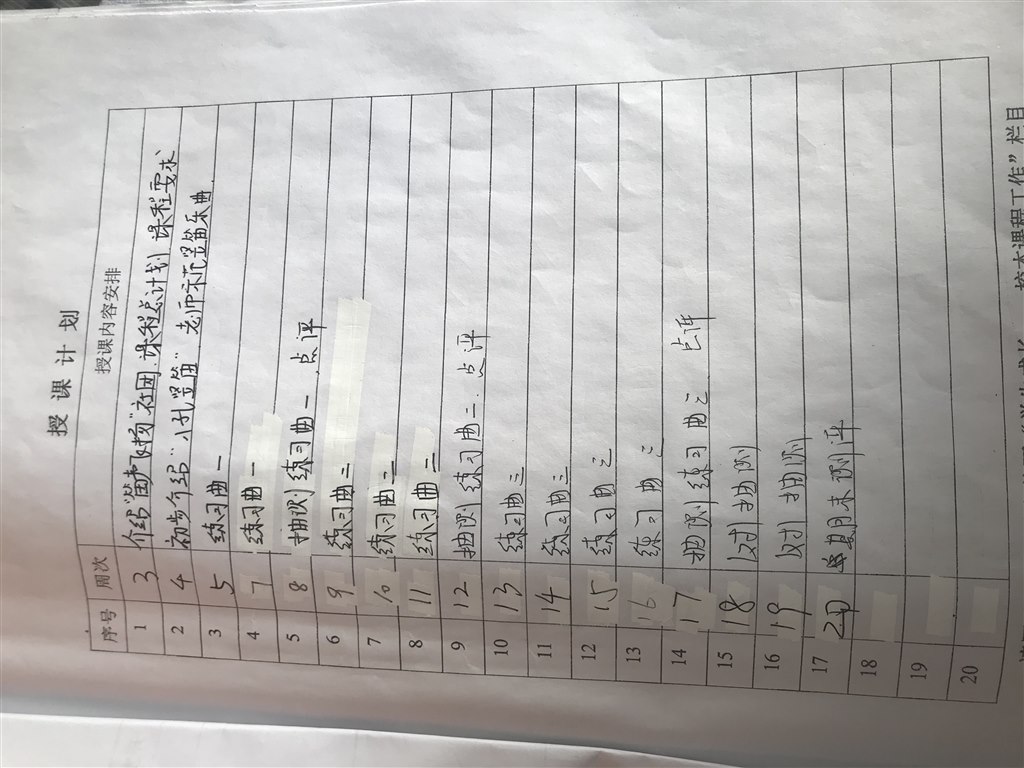 授课计划
序号 周次 授课内容安排
1 3 介绍"笛声飞扬"社团.课程总计划.课程要求
2 4 初步介绍"小孔竖笛" 老师示范竖笛乐曲.
3 5 练习曲一
4 7 练习曲一
5 8 抽测练习曲一.点评
6 9 练习曲二
7 10 练习曲二
8 11 练习曲二
9 12 抽测练习曲二.点评
10 13 练习曲三
11 14 练习曲三
12 15 练习曲三
13 16 练习曲三
14 17 抽测练习曲三 点评
15 18 结对抽测
16 19 结对抽测
17 20 学期末测评
18
19
20
校本课程工作"栏目